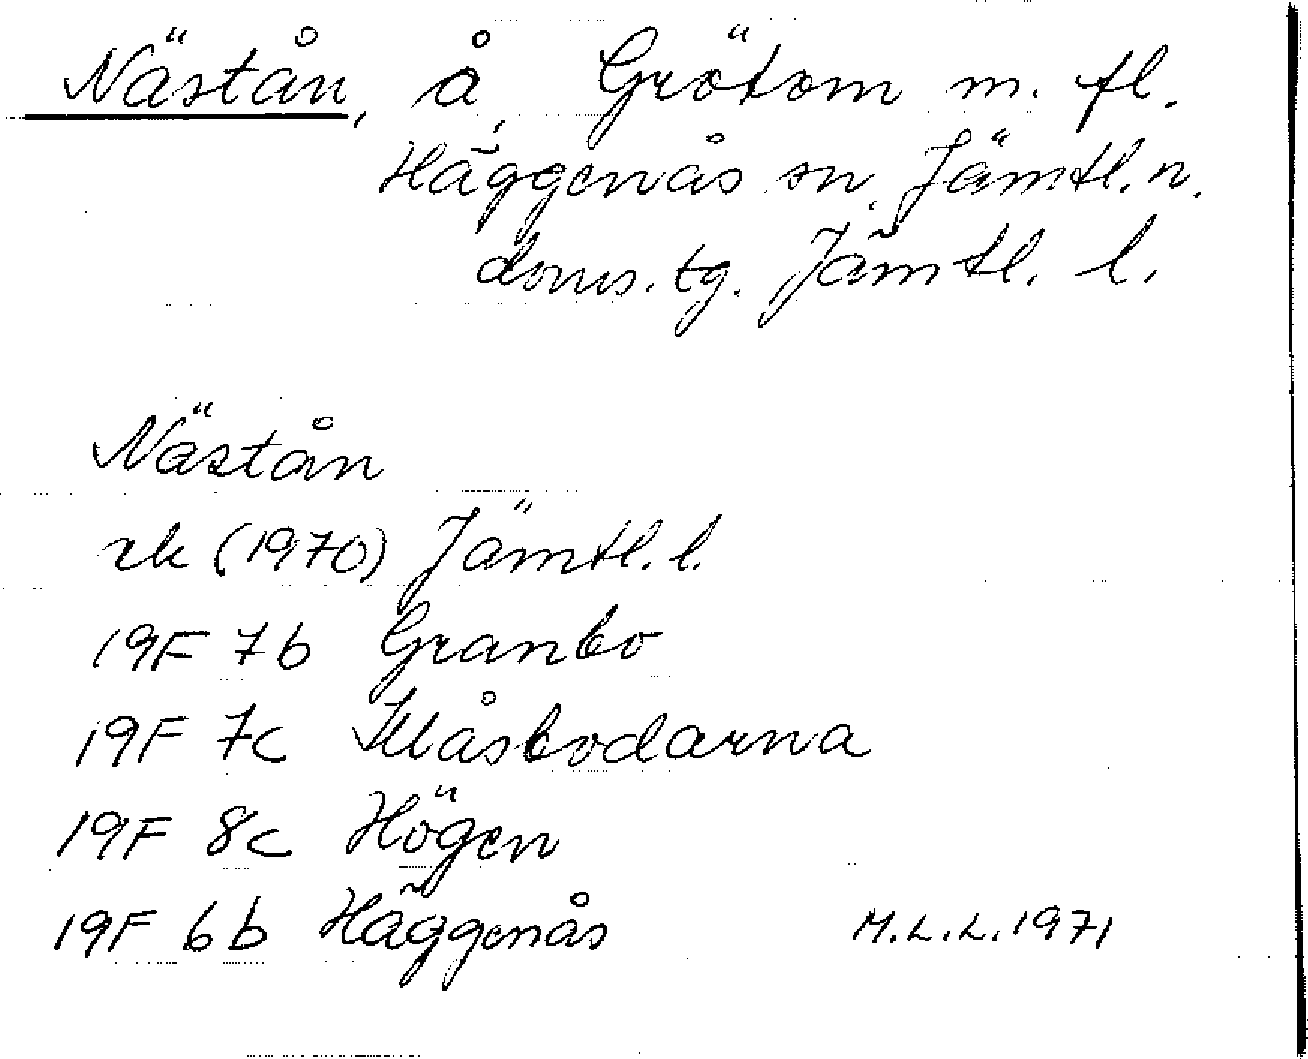 Nästån, å, Grötom m. fl.
Häggenås sn. Jämtl. n.
doms. tg. Jämtl. l.
Nästån
rk (1970) Jämtl. l.
19F 7b Granbo
19F 7c Månsbodarna
19F 8c Högen
19F 6b Häggenås
M.L.L. 1971